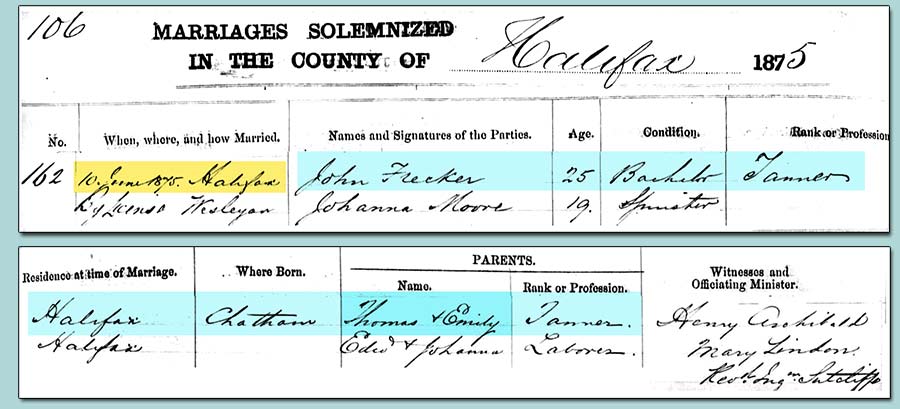 106
MARRIAGES SOLEMNIZED
IN THE COUNTY OF Halifax 1875
No. When, where, and how Married. Names and Signatures of the Parties. Age. Condition. Rank or Profession
162 10. June 1875. Halifax John Frecker 25 Bachelor Tanner
By License Wesleyan Johanna Moore 19. Spinster
PARENTS.
Residence at time of Marriage. Where Born. Name. Rank or Profession. Witnesses and
Officiating Minister.
Halifax Chatham Thomas & Emily Tanner. Henry Archibald
Halifax Edwd & Johanna Laborer. Mary Lindon.
Revd. Ingm. Sutcliffe